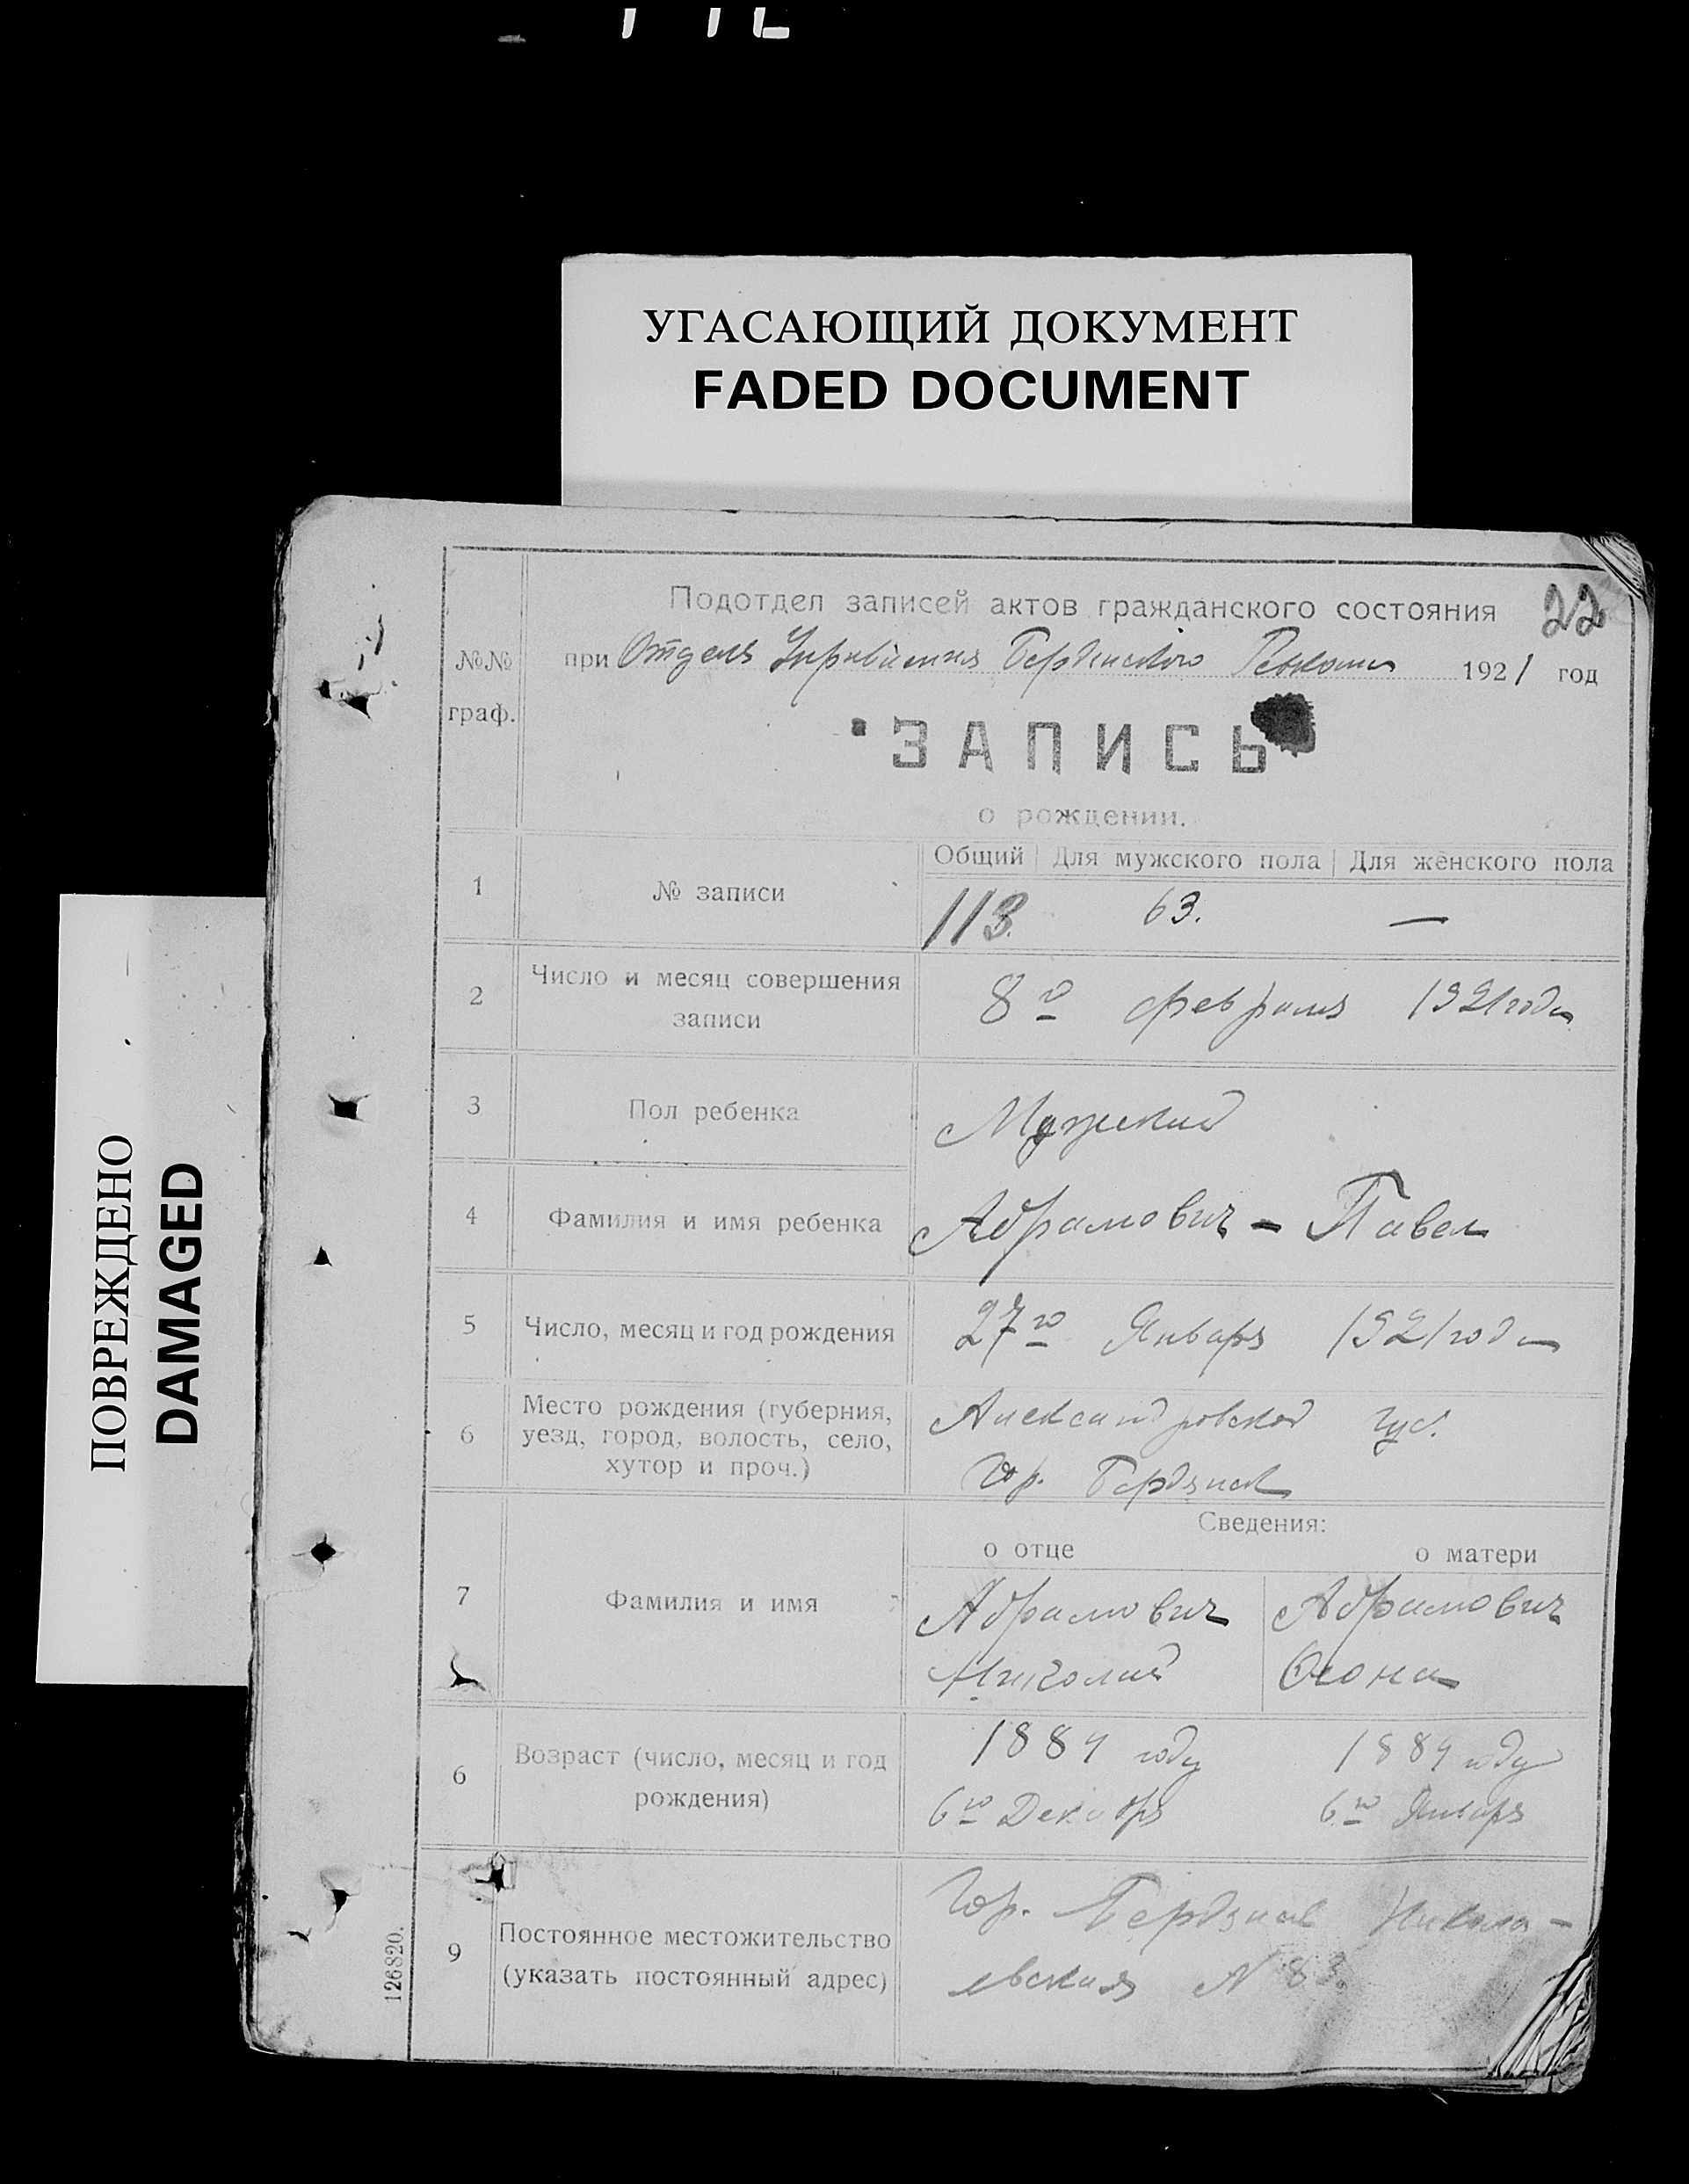 УГАСАЮЩИЙ ДОКУМЕНТ
FADED DOCUMENT
ПОВРЕЖДЕНО
DAMAGED
22
Подотдел записей актов гражданского состояния
№№ граф.
при Отделе Управления Бердянского Ревкома 1921 год
ЗАПИСЬ
о рождении.
Общий | Для мужского пола | Для женского пола
1 № записи 113. 63. —
2 Число и месяц совершения записи
8го февраля 1921 года
3 Пол ребенка Мужский
4 Фамилия и имя ребенка Абрамович - Павел
5 Число, месяц и год рождения 27го Января 1921 года
6 Место рождения (губерния, уезд, город, волость, село, хутор и проч.)
Александровской губ.
Гор. Бердянск
Сведения:
о отце о матери
7 Фамилия и имя
Абрамович Абрамович
Николай
6 Возраст (число, месяц и год рождения)
году году
6го Декабря 6го Января
9 Постоянное местожительство (указать постоянный адрес)
Гор. Бердянск Никола-
евская N 83.
126820.